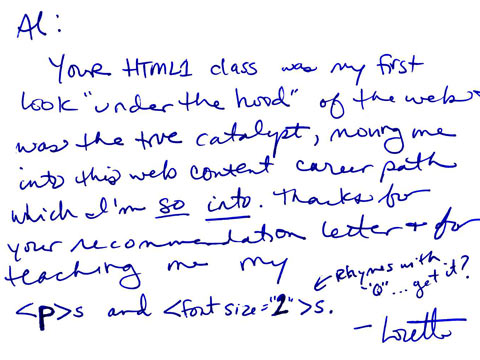 Al:
Your HTML1 class was my first
look "under the hood" of the web +
was the true catalyst, moving me
into this web content career path
which I'm so into. Thanks for
your recommendation letter + for
teaching me my
<p>s and <font size="2">s.
← Rhymes with
"Q"... get it?
- Loretta